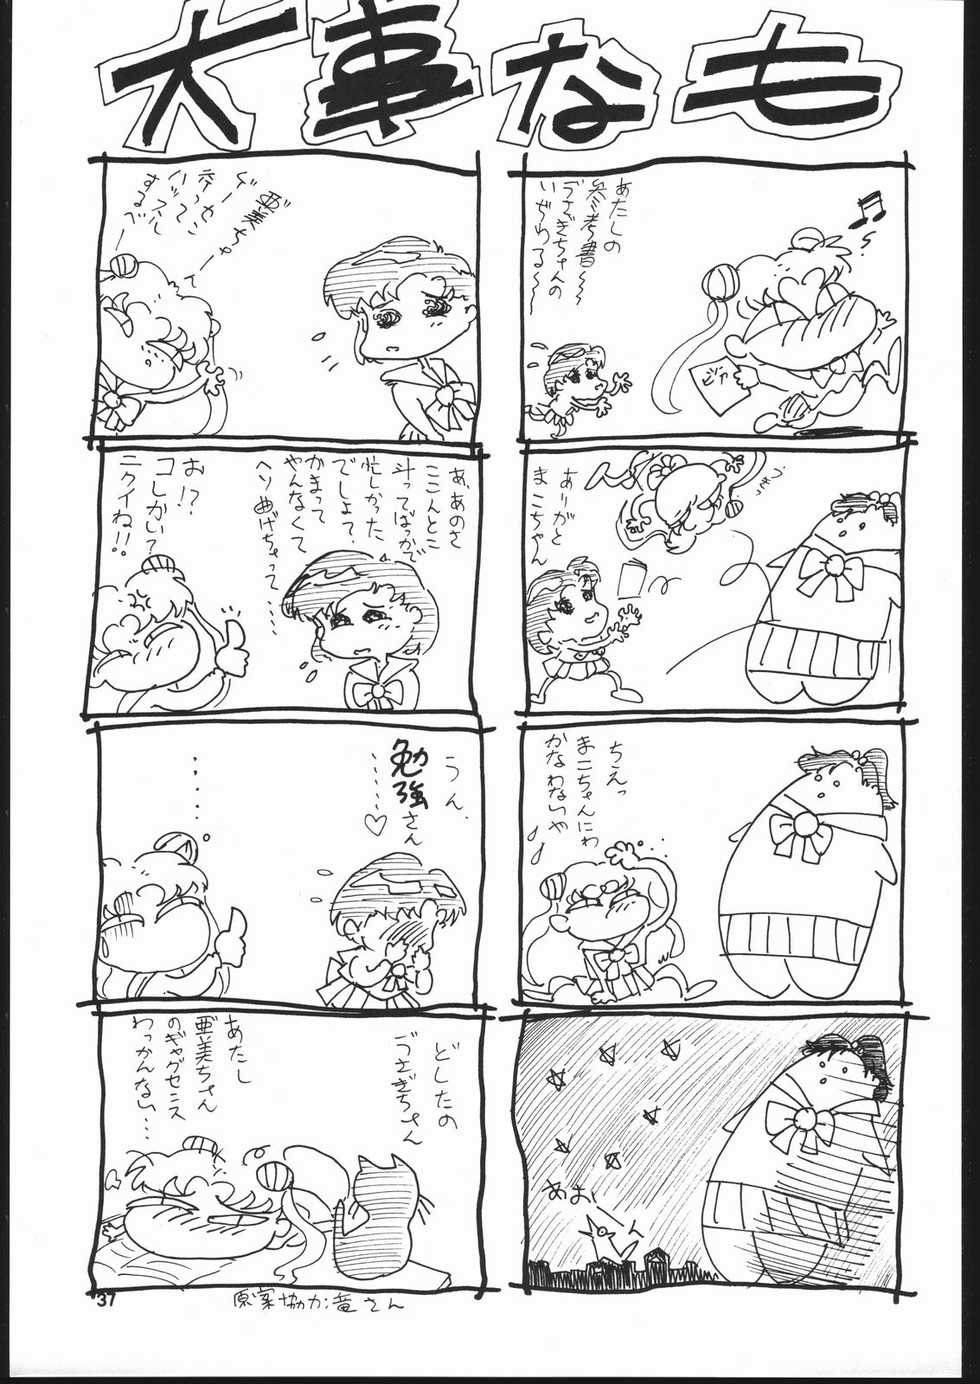 大事なも
あたしの
参考書〜〜
うさぎちゃんの
いぢわる〜〜
ありがと
まこちゃん
ちえっ
まこちゃんにわ
かなわないや
あよ
亜美ちゃ
ハッスル
するべー
あ、あのさ
ここんとこ
斗ってばっかで
忙しかった
でしょ?
かまって
やんなくて
ヘソ曲げちゃって……
お!?
コレかい?
ニクイね!!
うん、
勉強さん
……♡
……。
どしたの
うさぎちゃん
あたし
亜美ちゃん
のギャグセンス
わっかんない…
37
原案協力:竜さん